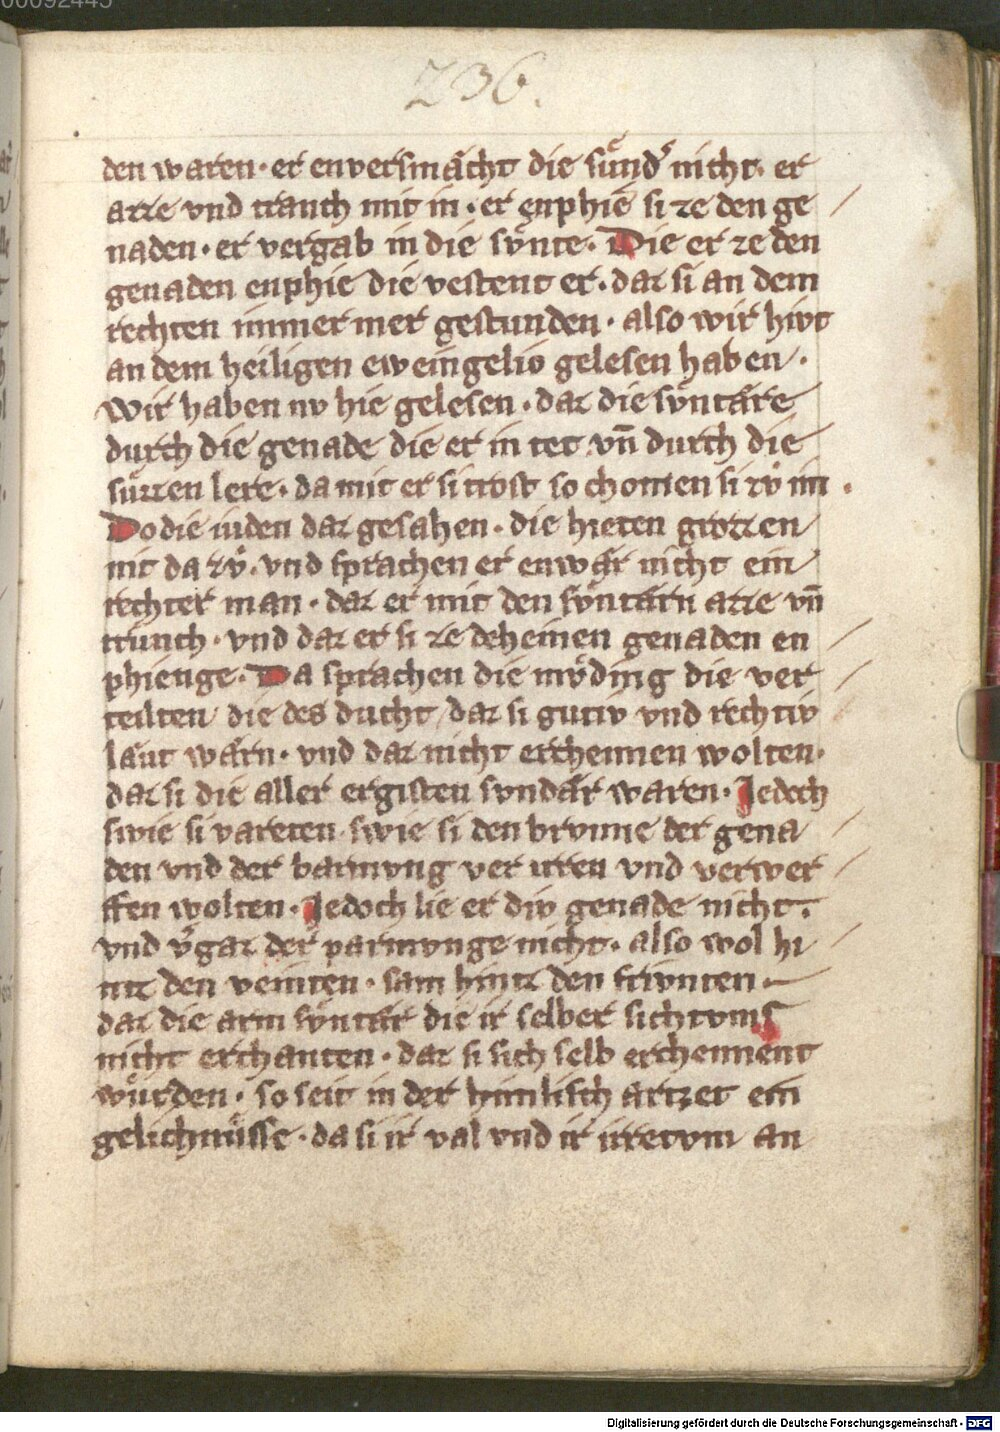 00092445
236.
den waren · er enversmächt die sűnd᷎ nicht · er
azze vnd tranch mit in · er enphie si ze den ge
naden · er vergab in die sv̈nte · Die er ze den
genaden enphie die vestent er · daz si an dem
rechten immer mer gestunden · also wir hivt
an dem heiligen eweingelio gelesen haben ·
Wir haben nv hie gelesen · daz die sv̈ntäre
durch die genade die er in tet vn̄ durch die
süzzen lere · da mit er si trost so chomen si zv̊ im ·
Do die iuden daz gesahen · die hieten grozzen
nit da zv̊ · vnd sprachen er enwär nicht ein
rechter man · daz er mit den sv̈ntärn azze vn̄
trunch · vnd daz er si ze deheinen genaden en
phienge · Da sprachen die mv̊ding die ver
teilten die des ducht daz si gutiv vnd rechtiv
läut wärn · vnd daz nicht erchennen wolten ·
daz si die aller ergisten svndär waren · Jedoch
swie si vareten swie si den brvnne der gena
den vnd der barmvng ver irren vnd verwer
ffen wolten · Jedoch lie er div genade nicht ·
vnd v᷎gaz der parmvnge nicht · also wol hi
ntz den veinten · sam hintz den frivnten ·
daz die arm sv̈ntär die ir selber sichtvms
nicht erchanten · daz si sich selb erchennent
würden · so seit in der himlisch artzet ein
gelichnüsse · da si ir val vnd ir irretvm an
Digitalisierung gefördert durch die Deutsche Forschungsgemeinschaft - DFG